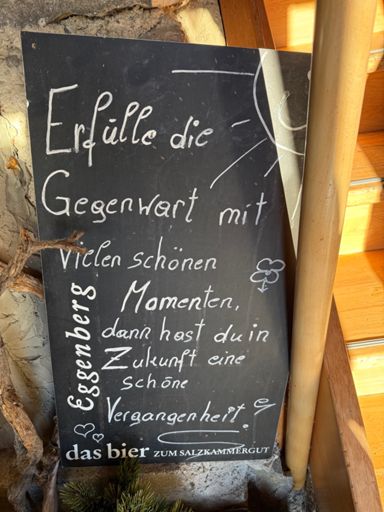 Erfülle die
Gegenwart mit
vielen schönen
Momenten,
dann hast du in
Zukunft eine
schöne
Vergangenheit.
Eggenberg
das bier ZUM SALZKAMMERGUT